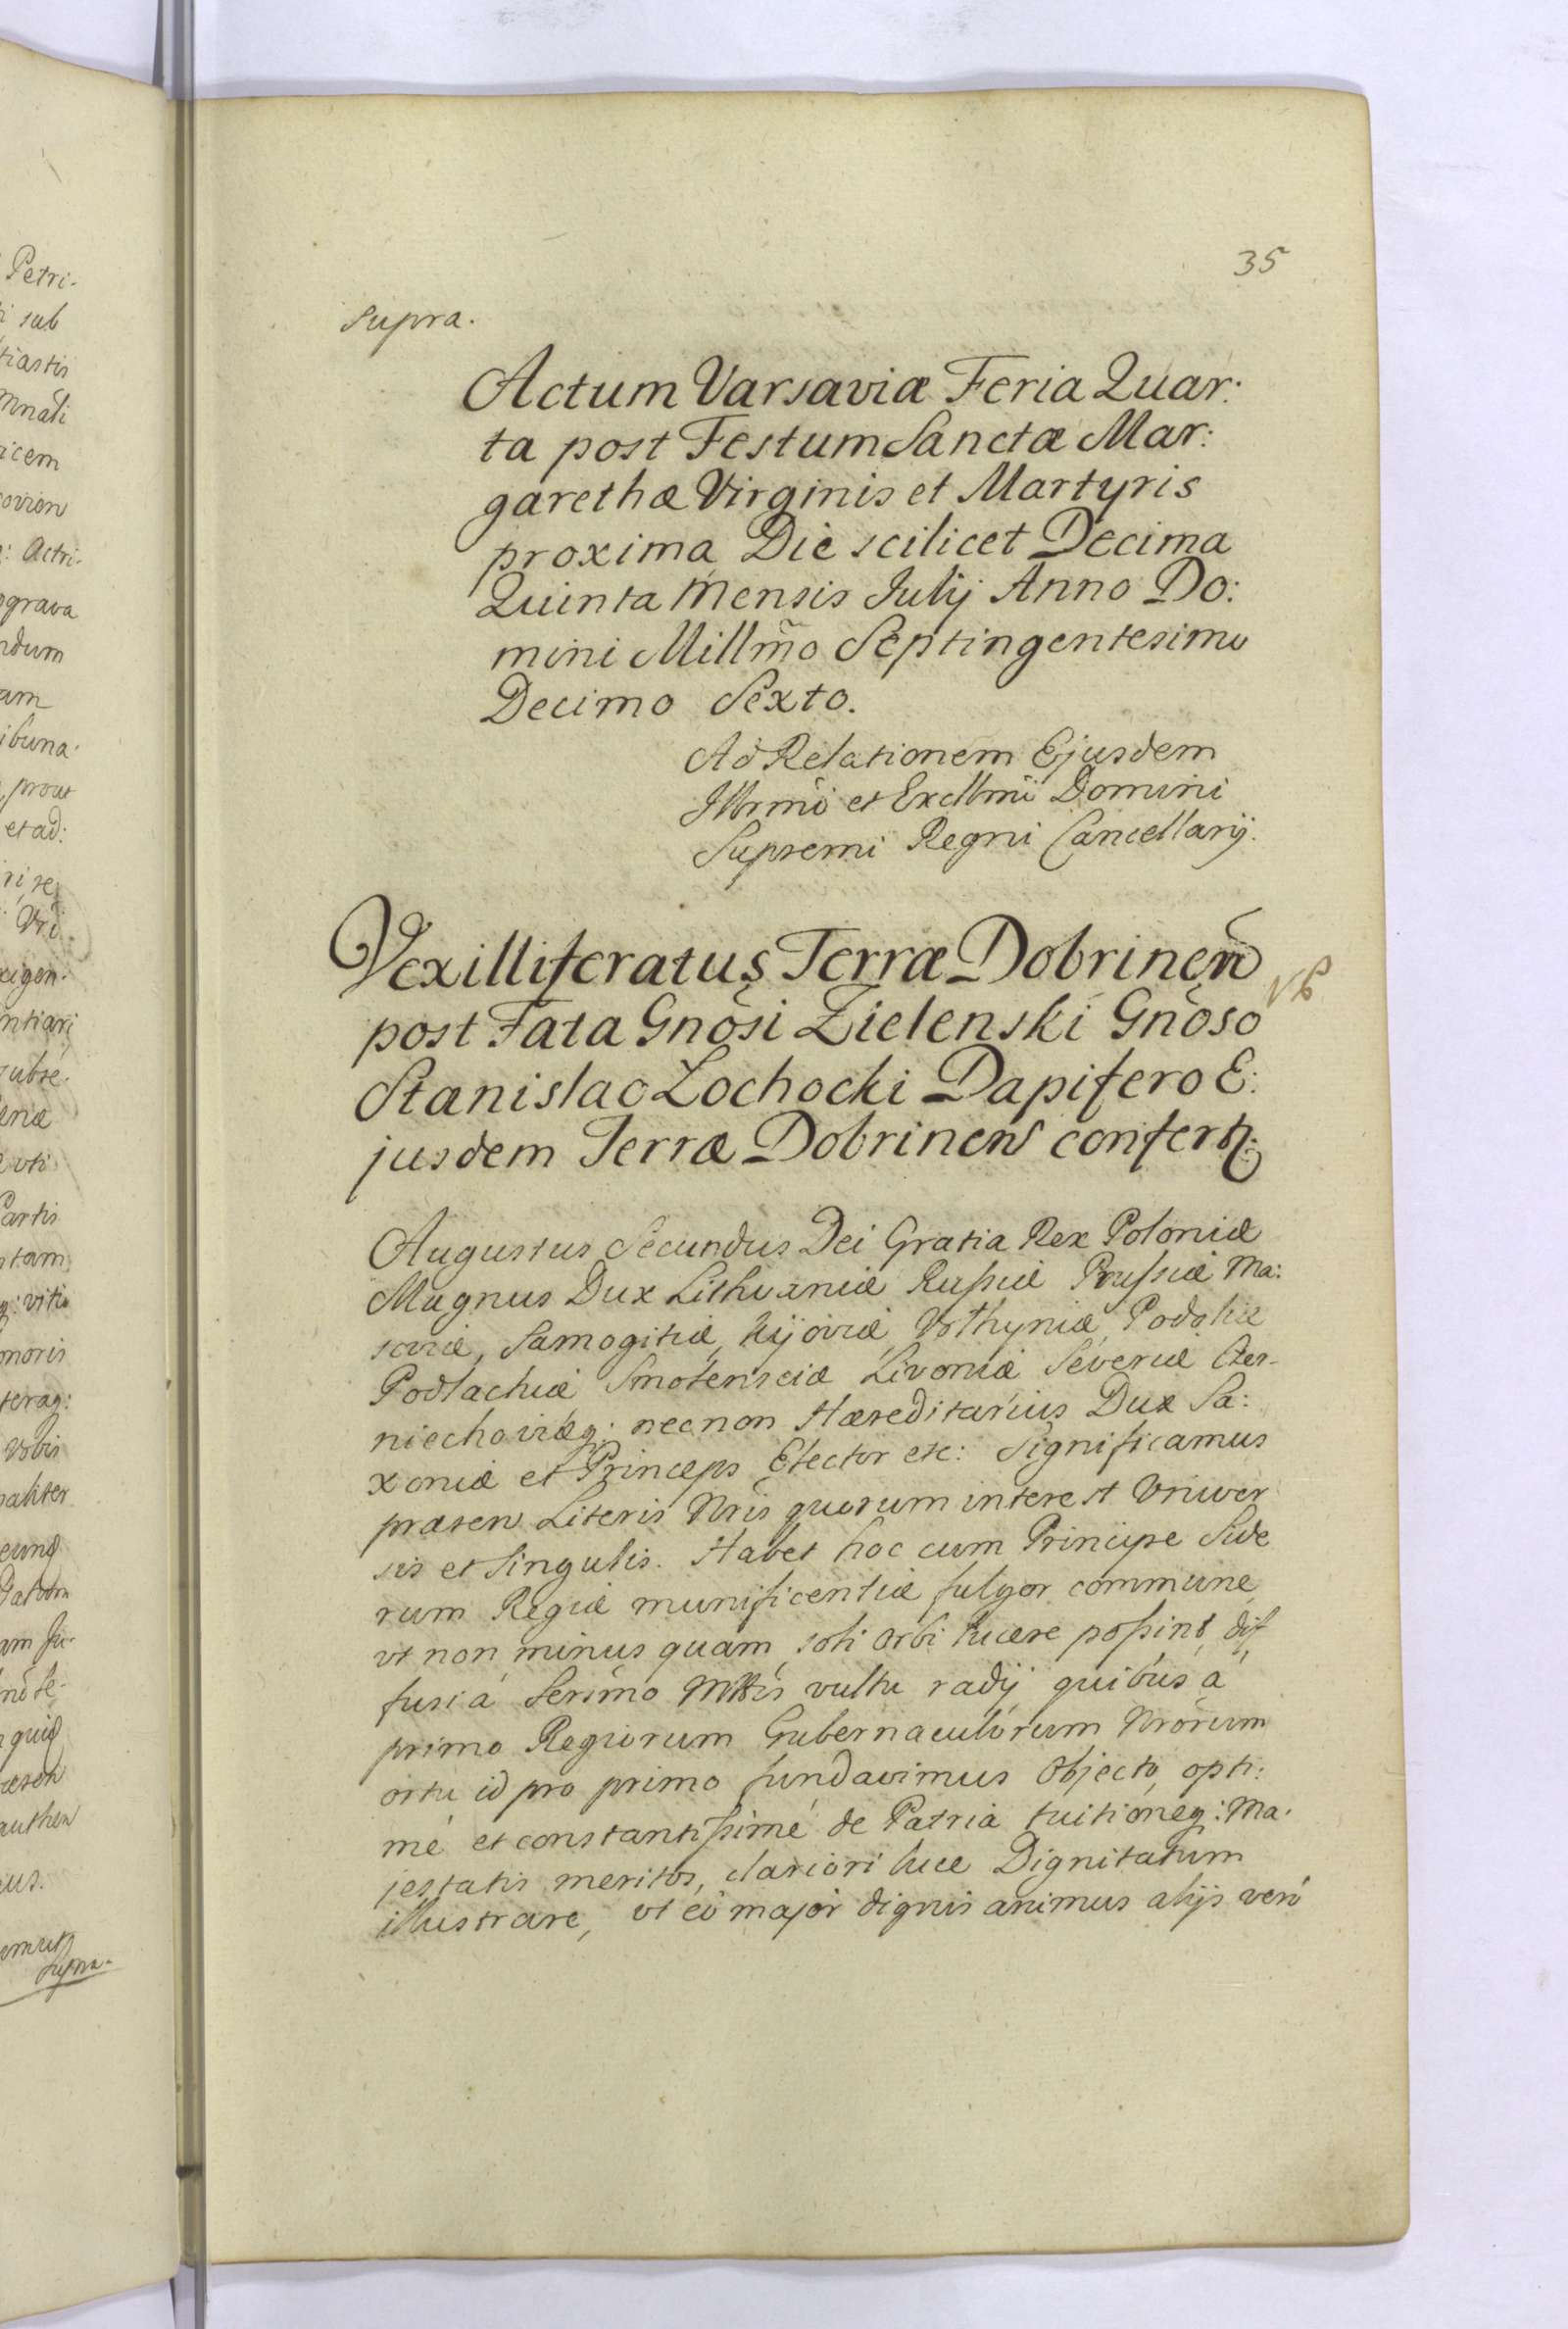 35
supra.
Actum Varsaviæ Feria Quar:
ta post Festum Sanctæ Mar:
garethæ Virginis et Martyris
proxima Die scilicet Decima
Quinta Mensis Julij Anno Do:
mini Millmo Septingentesimo
Decimo Sexto.
Ad Relationem Ejusdem
Illrmi et Excllmi Domini
Supremi Regni Cancellarij.
Vexilliferatus Terræ Dobrinen
post Fata Gnosi Zielenski Gnoso
Stanislao Lochocki Dapifero E:
jusdem Terræ Dobrinen confert:
Augustus Secundus Dei Gratia Rex Poloniæ
Magnus Dux Lithuaniæ Russiæ Prussiæ Ma:
soviæ, Samogitiæ, Kijoviæ, Volhyniæ, Podoliæ
Podlachiæ Smolensciæ Livoniæ Severiæ Czer-
niechoviæq: necnon Hæreditarius Dux Sa:
xoniæ et Princeps Elector etc: Significamus
præsen Literis Nris quorum interest Univer
sis et Singulis. Habet hoc cum Principe Side
rum Regiæ munificentiæ fulgor commune
ut non minus quam soli orbi lucere possint, dif
fusi á Serimo Mttis vultu radij quibus á
primo Regiorum Gubernaculorum Nrorum
ortu id pro primo fundavimus Objecto, opti:
mé et constantissimé de Patria tuitioneq: Ma.
jestatis meritos, clariori luce Dignitatum
illustrare, ut eó major dignis animus alijs veró
Petri.
sub
tiastis
icem
: Actri.
ograva
ndum
am
ibuna.
prout
et ad:
ri se
ntiari
subse.
uti
Partis
ntam
: vitio
onoris
terag:
Vobis
naliter
am Ju.
authen
supra.